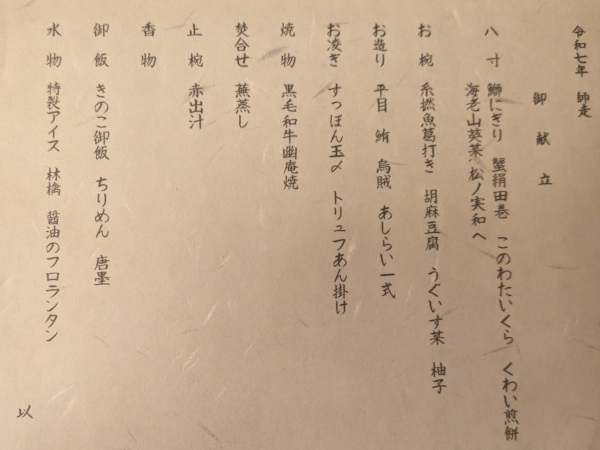 令和七年 師走
御献立
八寸 鰤にぎり 蟹絹田巻 このわたいくら くわい煎餅
海老山葵菜 松ノ実和へ
お椀 糸撚魚葛打き 胡麻豆腐 うぐいす菜 柚子
お造り 平目 鮪 烏賊 あしらい一式
お凌ぎ すっぽん玉〆 トリュフあん掛け
焼物 黒毛和牛幽庵焼
焚合せ 蕪蒸し
止椀 赤出汁
香物
御飯 きのこ御飯 ちりめん 唐墨
水物 特製アイス 林檎 醤油のフロランタン
以